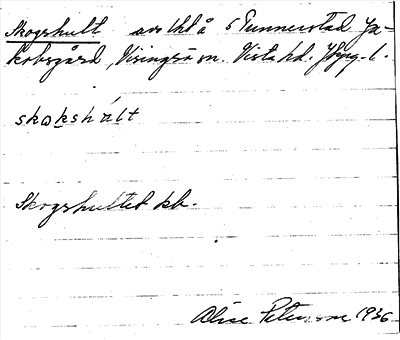 Skogshult avs lht å s Tunnerstad Ja-
kobsgård, Visingsö sn. Vista hd. Jkpg. l.
skokshält
Skogshultet kb.
Alice Petersson 1936